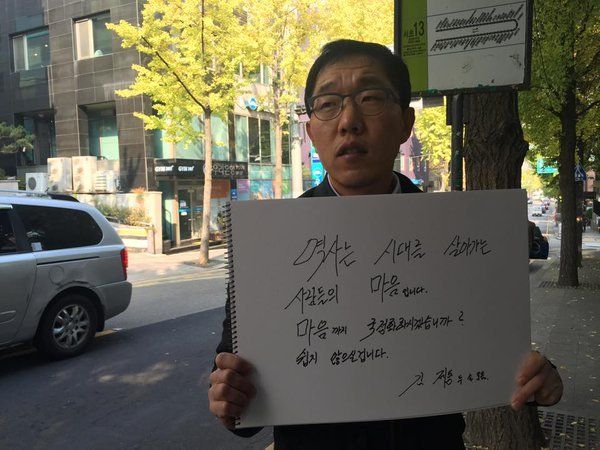 서초13
역사는 시대를 살아가는
사람들의 마음입니다.
마음까지 국정화하시겠습니까?
쉽지 않으실겁니다.
김제동